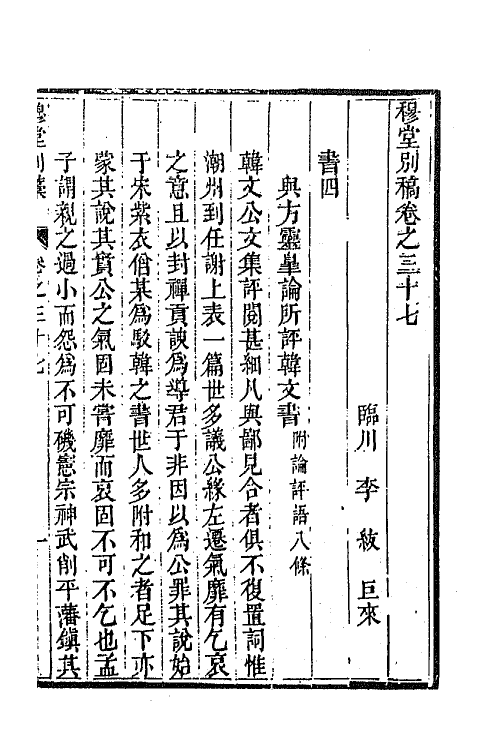 穆堂別稿卷之三十七
臨川 李 紱 巨來
書四
與方靈臯論所評韓文書附論評語八條
韓文公文集評閱甚細凡與鄙見合者俱不復置詞惟
潮州到任謝上表一篇世多議公緣左遷氣靡有乞哀
之意且以封禪貢諛爲導君于非因以爲公罪其說始
于宋紫衣僧某爲駁韓之書世人多附和之者足下亦
蒙其說其實公之氣固未嘗靡而哀固不可不乞也孟
子謂親之過小而怨爲不可磯憲宗神武削平藩鎮其
穆堂別藁 卷之三十七 一